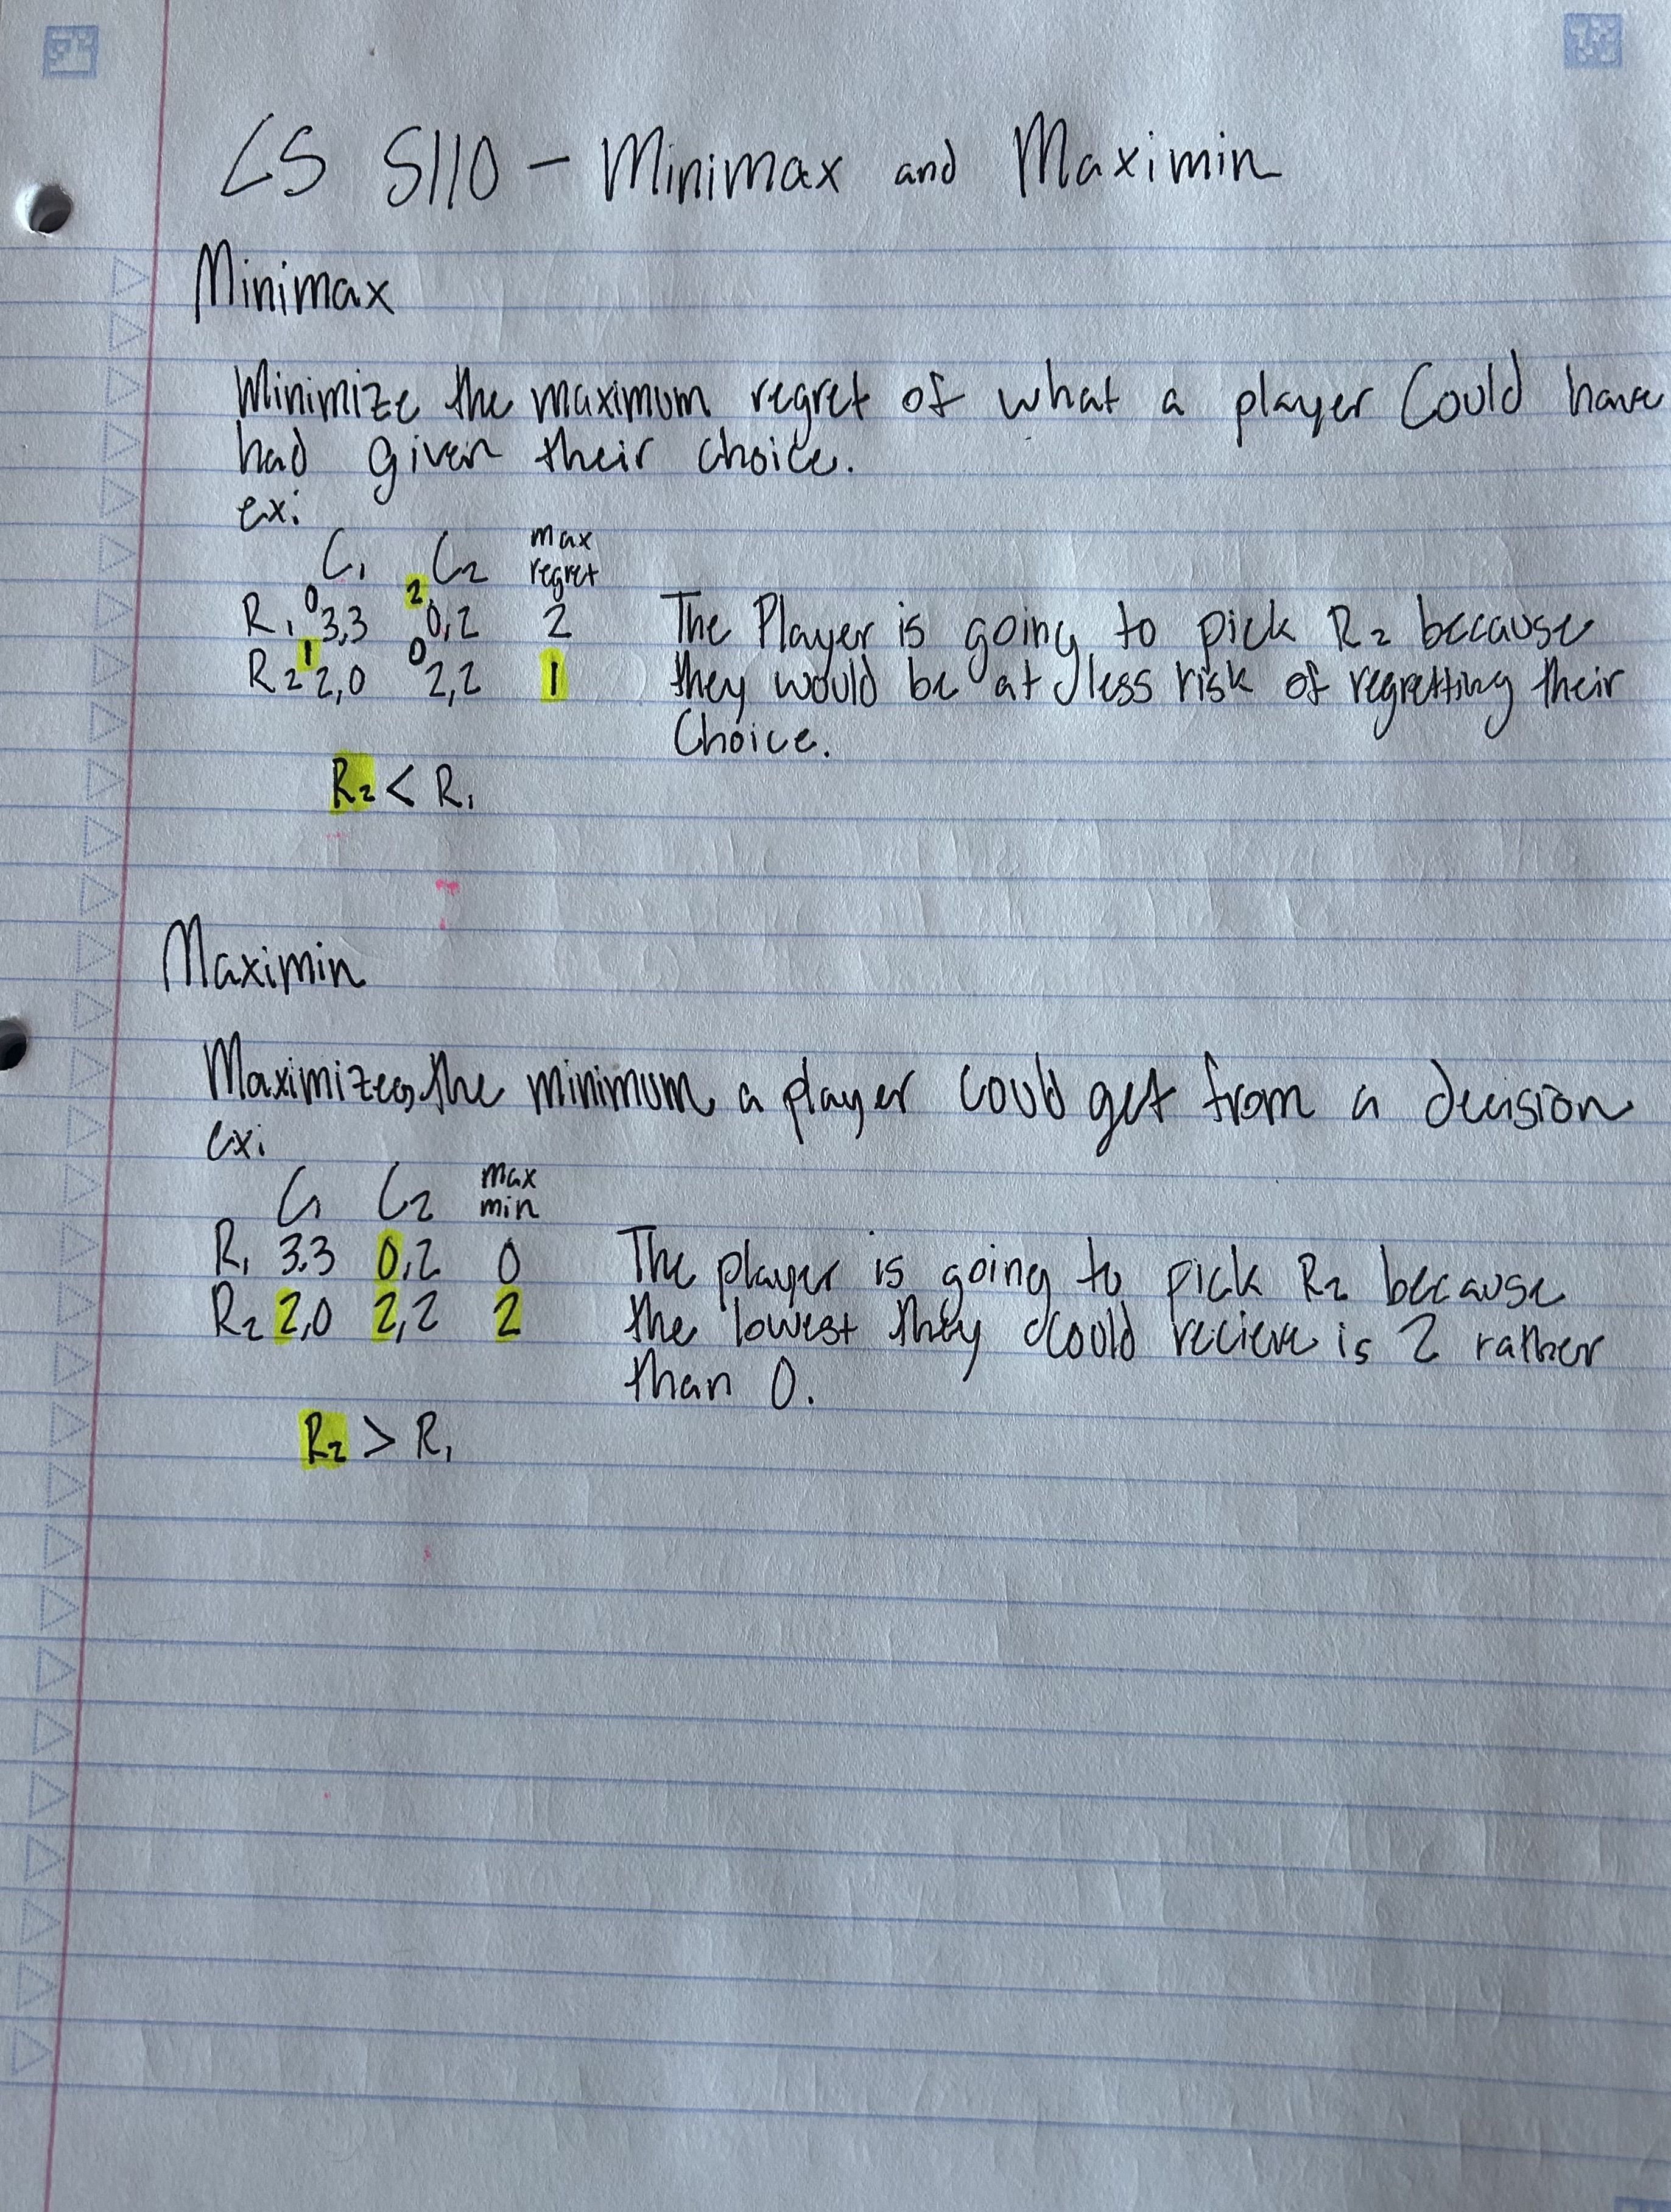 CS 5110 – Minimax and Maximin
Minimax
Minimize the maximum regret of what a player could have
had given their choice.
ex:
C1 C2 max regret
R1 0 3,3 2 0,2 2 The Player is going to pick R2 because
R2 1 2,0 0 2,2 1 they would be at less risk of regretting their
Choice.
R2 < R1
Maximin
Maximizes the minimum a player could get from a decision
ex:
C1 C2 max min
R1 3,3 0,2 0 The player is going to pick R2 because
R2 2,0 2,2 2 the lowest they could recieve is 2 rather
than 0.
R2 > R1